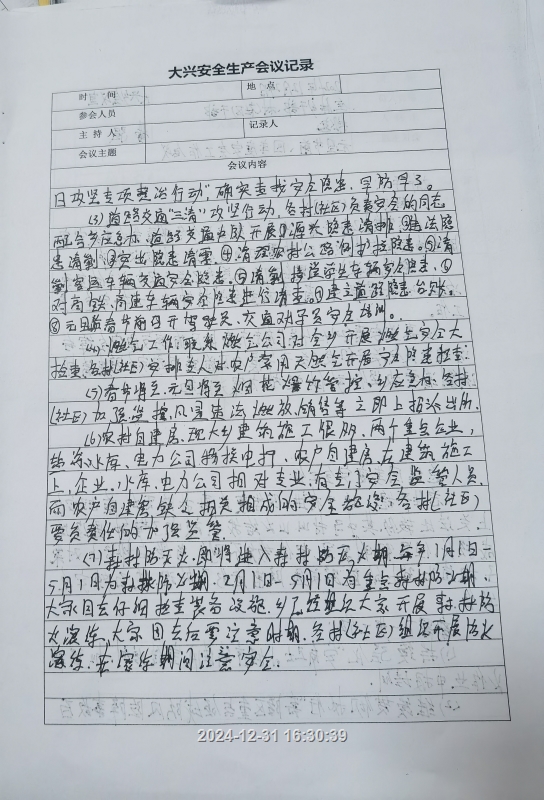 大兴安全生产会议记录
时 间
地 点
参会人员
主 持 人
记录人
会议主题
会议内容
日攻坚专项整治行动",确实查找安全隐患,早防早了。
(3)道路交通"三清"攻坚行动,各村(社区)负责安全的同志
配合乡应急办、道路交通中队开展①源头隐患清排、②违法隐
患清剿③突出隐患清零。④清理农村公路侧护栏隐患。⑤清
剿客运车辆交通安全隐患。⑥清剿接送学生车辆安全隐患。⑦
对高铁、高速车辆安全隐患进行清查。⑦建立道路隐患台账。
⑧元旦及春节前召开驾驶员、交通对子员安全培训。
(4)燃气工作,联系燃气公司对全乡开展燃气安全大
检查,各村(社区)安排专人对农户常用天然气开展安全隐患检查。
(5)春节将至,元旦将至,烟花爆竹管控,乡应急办、各村
(社区)加强监控,凡是违法燃放、销售等立即上报派出所。
(6)农村自建房,现大乡建筑施工很多,两个重点企业,
水库、电力公司
上,企业、水库、电力公司相对专业,有专门安全监管人员,
而农户自建房缺乏相关相成的安全 各村(社区)
要负责任的加强监管。
(7)森林防灭火,即将进入森林防火期,每年1月1日-
5月1日为森林防火期,2月1日-5月1日为重点森林防火期。
大家回去仔细检查装备设施,乡已经组织大家开展森林防
火演练,大家回去后要注意时期,各村(社区)组织开展防火
演练,在演练期间注意安全。
2024-12-31 16:30:39